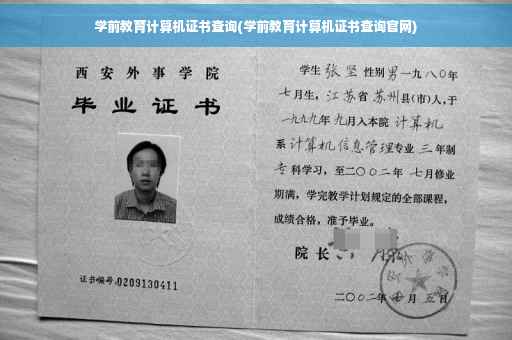 学前教育计算机证书查询(学前教育计算机证书查询官网)
西安外事学院
毕业证书
证书编号:0209130411
学生 张坚 性别 男 一九八〇年
七月生，江苏省 苏州县(市)人，于
一九九九年 九月入本院 计算机
系 计算机信息管理专业 三 年制
专 科学习，至二〇〇二年 七月修业
期满，学完教学计划规定的全部课程，
成绩合格，准予毕业。
院 长
二〇〇二年 月 五日